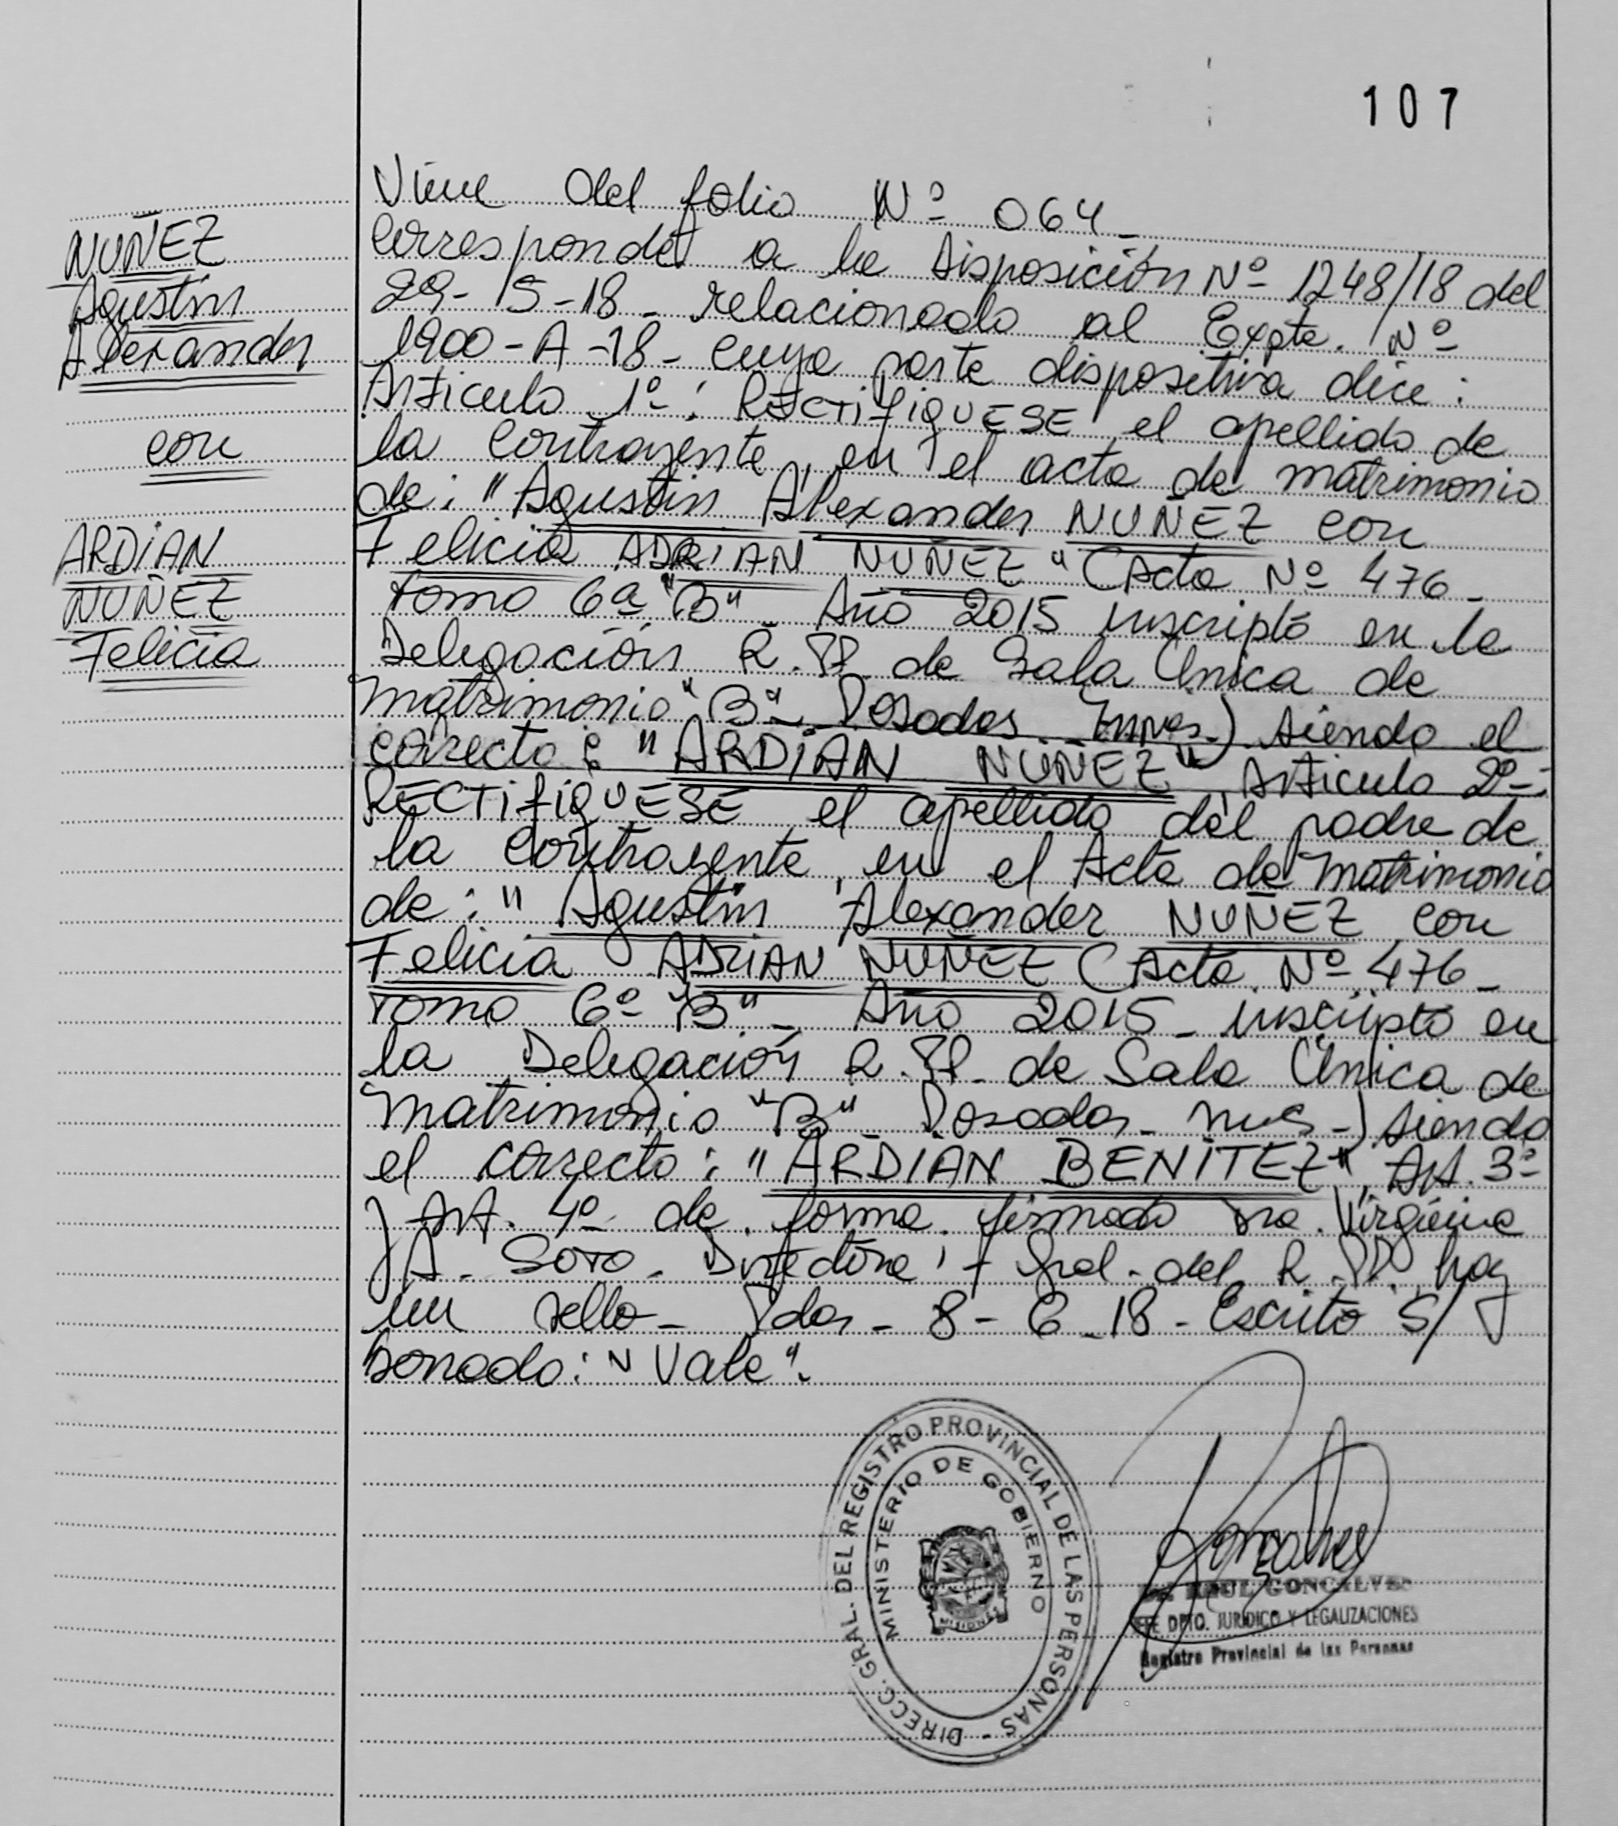 107
Viene del folio Nº 064_
NUÑEZ
Agustín
Alexander
con
ARDIAN
NUÑEZ
Felicia
Corresponde a la Disposición Nº 1248/18 del
29-5-18_ relacionado al Expte. Nº
1900-A-18_ cuya parte dispositiva dice:
Artículo 1º: RECTIFIQUESE el apellido de
la contrayente, en el acta de matrimonio
de: "Agustín Alexander NUÑEZ con
Felicia ADRIAN NUÑEZ" (Acta Nº 476_
Tomo 6º "B"_ Año 2015 inscripto en la
Delegación R.PP. de Sala Única de
Matrimonio "B"_ Posadas Mnes.) siendo el
correcto: "ARDIAN NUÑEZ" Artículo 2º-:
RECTIFIQUESE el apellido del padre de
la contrayente, en el Acta de Matrimonio
de: "Agustín Alexander NUÑEZ con
Felicia ADRIAN NUÑEZ (Acta Nº 476_
Tomo 6º "B"_ Año 2015_ inscripto en
la Delegación R.PP. de Sala Única de
Matrimonio "B" Posadas_ Mnes_) siendo
el correcto: "ARDIAN BENITEZ" Art. 3º
y Art. 4º de forma firmado Dra. Virginia
A. Soto_ Directora Gral. del R.PP. hay
un sello_ Pdas_ 8-6-18_ Escrito S/
borrado: "Vale".
DIRECC. GRAL. DEL REGISTRO PROVINCIAL DE LAS PERSONAS -
MINISTERIO DE GOBIERNO
MISIONES
RAUL GONCALVES
DPTO. JURIDICO Y LEGALIZACIONES
Registro Provincial de las Personas